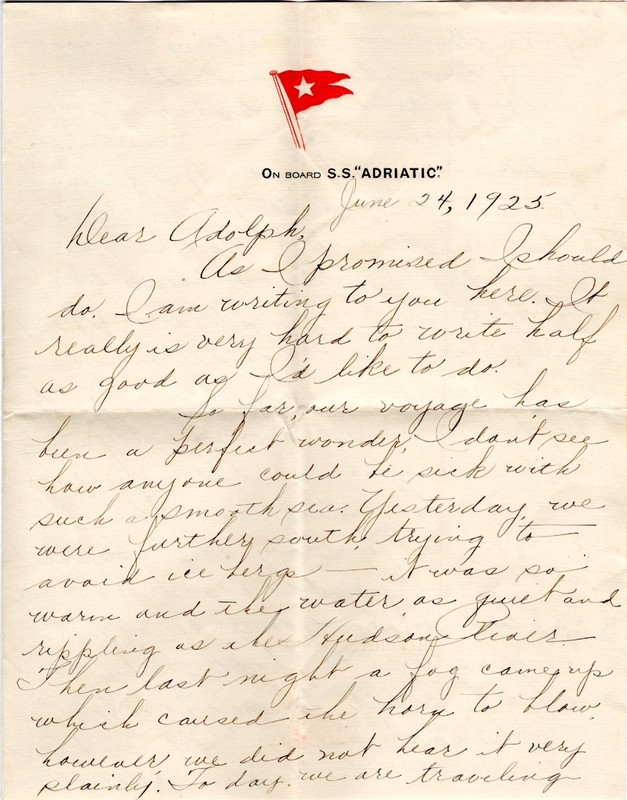 ON BOARD S.S. "ADRIATIC".
June 24, 1925.
Dear Adolph,
As I promised I should
do. I am writing to you here. It
really is very hard to write half
as good as I'd like to do.
So far, our voyage has
been a perfect wonder, I don't see
how anyone could be sick with
such a smooth sea. Yesterday, we
were further south, trying to
avoid ice bergs — it was so
warm and the water as quiet and
rippling as the Hudson River.
Then last night a fog came up
which caused the horn to blow,
however, we did not hear it very
plainly. To day we are traveling